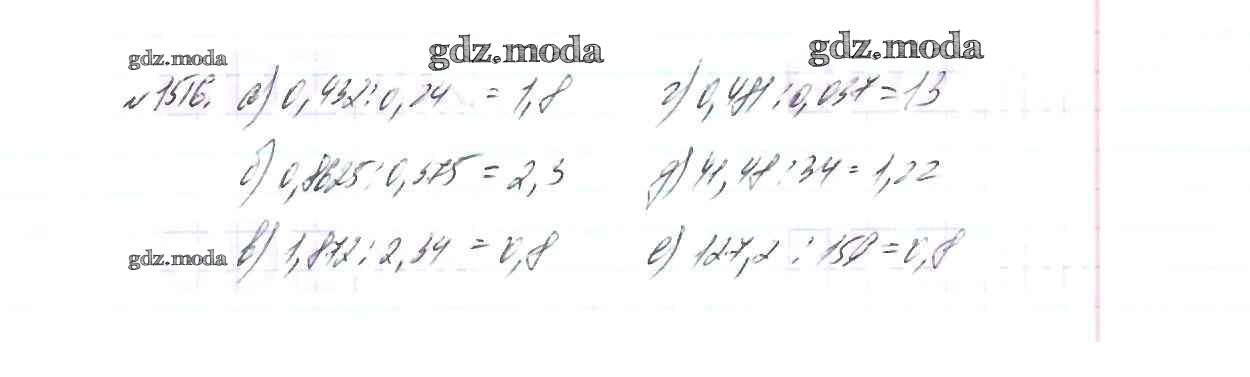 gdz.moda gdz.moda gdz.moda
№1516. а) 0,432:0,24 = 1,8 г) 0,481:0,037=13
б) 0,8625:0,375 = 2,3 д) 41,48:34=1,22
gdz.moda в) 1,872:2,34 = 0,8 е) 127,2:159=0,8